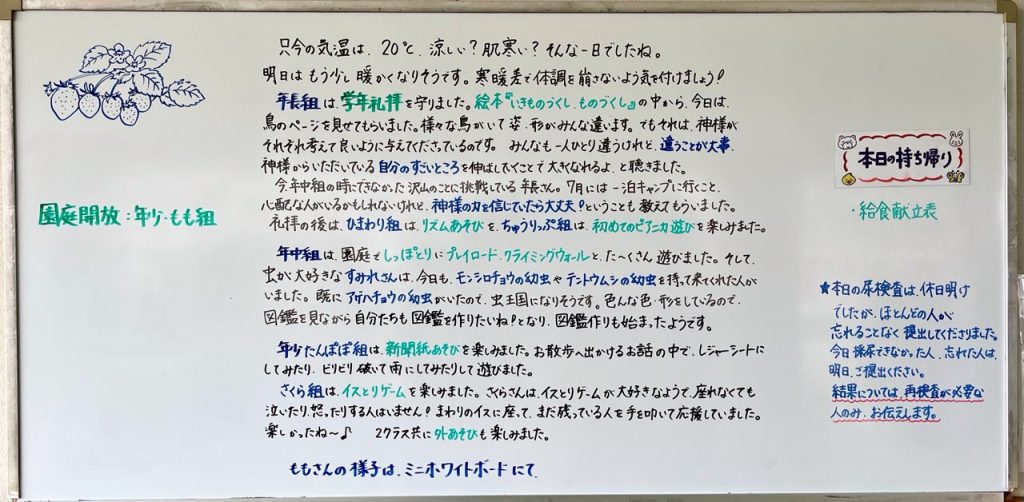 只今の気温は、20℃、涼しい？肌寒い？そんな一日でしたね。
明日はもう少し暖かくなりそうです。寒暖差で体調を崩さないよう気を付けましょう！
年長組は、学年礼拝を守りました。絵本『いきものづくし ものづくし』の中から、今日は、
鳥のページを見せてもらいました。様々な鳥がいて姿・形がみんな違います。でもそれは、神様が
それぞれ考えて良いように与えてくださっているのです。 みんなも一人ひとり違うけれど、違うことが大事、
神様からいただいている自分のすごいところを伸ばしていくことで大きくなれるよ、と聴きました。
今、年中組の時にできなかった沢山のことに挑戦している年長さん。7月には一泊キャンプに行くこと、
心配な人がいるかもしれないけれど、神様の力を信じていたら大丈夫！ということも教えてもらいました。
礼拝の後は、ひまわり組は、リズムあそびを、ちゅうりっぷ組は、初めてのピアニカ遊びを楽しみました。
年中組は、園庭でしっぽとりにプレイロード、クライミングウォールと、た〜くさん遊びました。そして、
虫が大好きなすみれさんは、今日も、モンシロチョウの幼虫やテントウムシの幼虫を持って来てくれた人が
いました。既にアゲハチョウの幼虫がいたので、虫王国になりそうです。色んな色・形をしているので、
図鑑を見ながら自分たちも図鑑を作りたいね！となり、図鑑作りも始まったようです。
年少たんぽぽ組は、新聞紙あそびを楽しみました。お散歩へ出かけるお話の中で、レジャーシートに
してみたり、ビリビリ破いて雨にしてみたりして遊びました。
さくら組は、イスとりゲームを楽しみました。さくらさんは、イスとりゲームが大好きなようで、座れなくても
泣いたり、怒ったりする人はいません！まわりのイスに座って、まだ残っている人を手を叩いて応援していました。
楽しかったね〜♪ 2クラス共に外あそびも楽しみました。
ももさんの様子は、ミニホワイトボードにて、
園庭開放：年少・もも組
本日の持ち帰り
・給食献立表
★本日の尿検査は、休日明け
でしたが、ほとんどの人が
忘れることなく提出してくださりました。
今日採尿できなかった人、忘れた人は、
明日、ご提出ください。
結果については、再検査が必要な
人のみ、お伝えします。